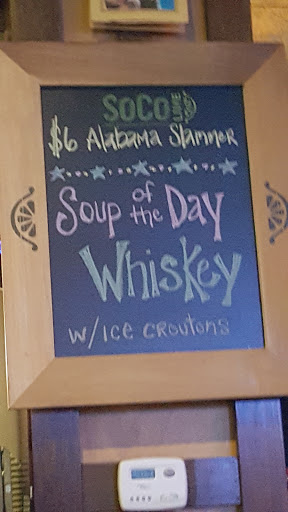 SOCO LIME
$6 Alabama Slammer
Soup of the Day
Whiskey
w/ICE CROUTONS